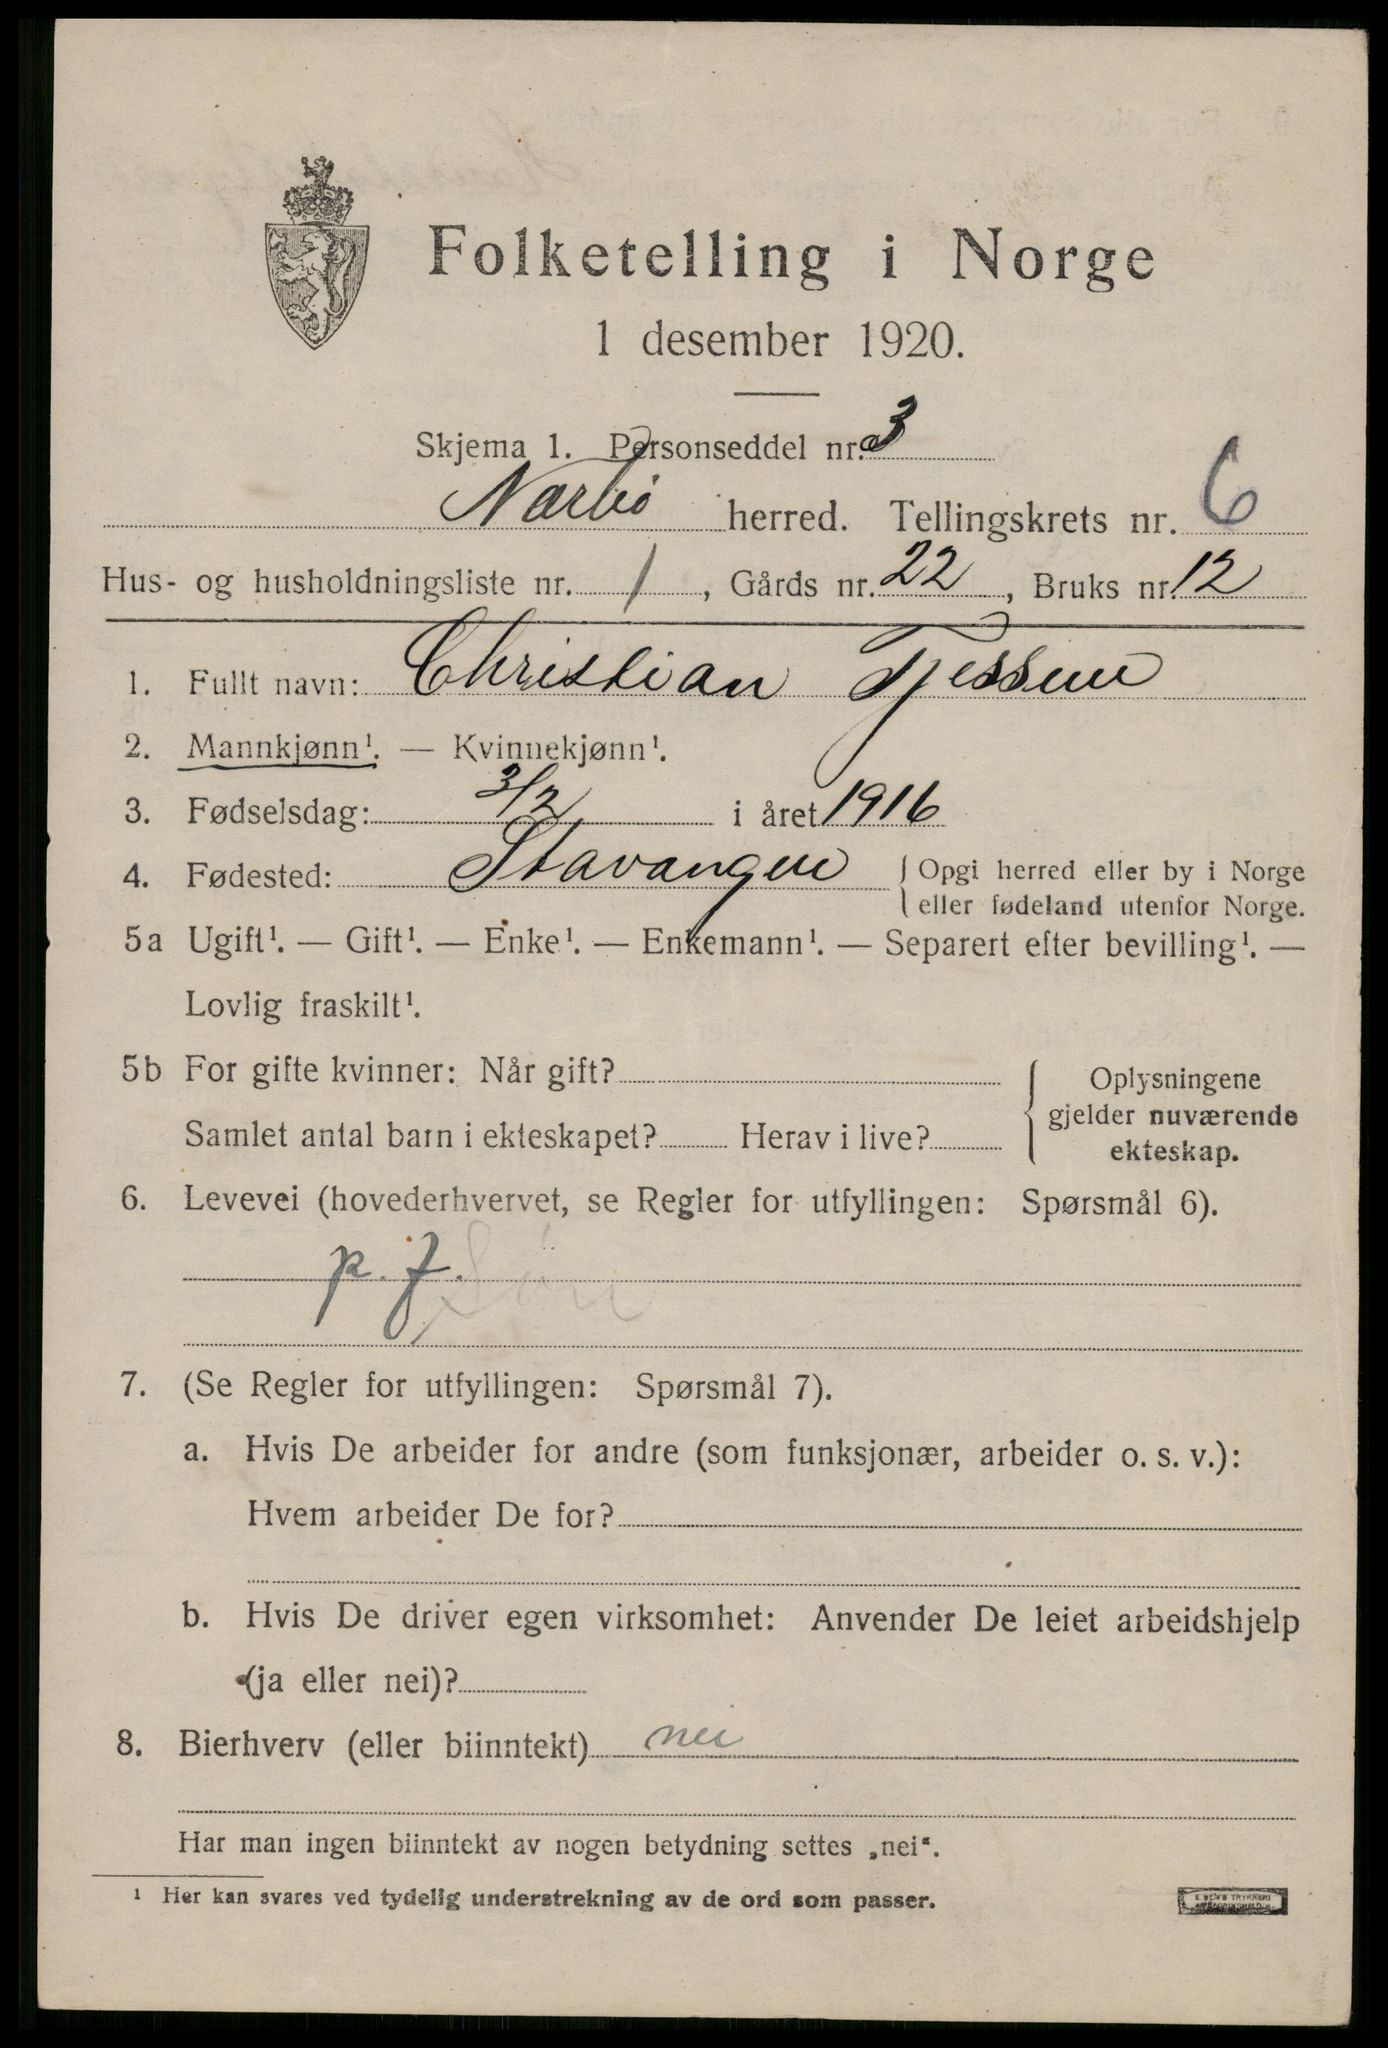 Folketelling i Norge
1 desember 1920.
Skjema 1. Personseddel nr. 3
Nærbø herred. Tellingskrets nr. 6
Hus- og husholdningsliste nr. 1, Gårds nr. 22, Bruks nr. 12
1. Fullt navn: Christian Tjessem
2. Mannkjønn¹. — Kvinnekjønn¹.
3. Fødselsdag: 3/2 i året 1916
4. Fødested: Stavanger { Opgi herred eller by i Norge
eller fødeland utenfor Norge.
5a Ugift¹. — Gift¹. — Enke¹. — Enkemann¹. — Separert efter bevilling¹. —
Lovlig fraskilt¹.
5b For gifte kvinner: Når gift?
Samlet antal barn i ekteskapet? Herav i live?
Oplysningene
gjelder nuværende
ekteskap.
6. Levevei (hovederhvervet, se Regler for utfyllingen: Spørsmål 6).
p. f. Søn
7. (Se Regler for utfyllingen: Spørsmål 7).
a. Hvis De arbeider for andre (som funksjonær, arbeider o. s. v.):
Hvem arbeider De for?
b. Hvis De driver egen virksomhet: Anvender De leiet arbeidshjelp
(ja eller nei)?
8. Bierhverv (eller biinntekt) nei
Har man ingen biinntekt av nogen betydning settes „nei“.
¹ Her kan svares ved tydelig understrekning av de ord som passer.